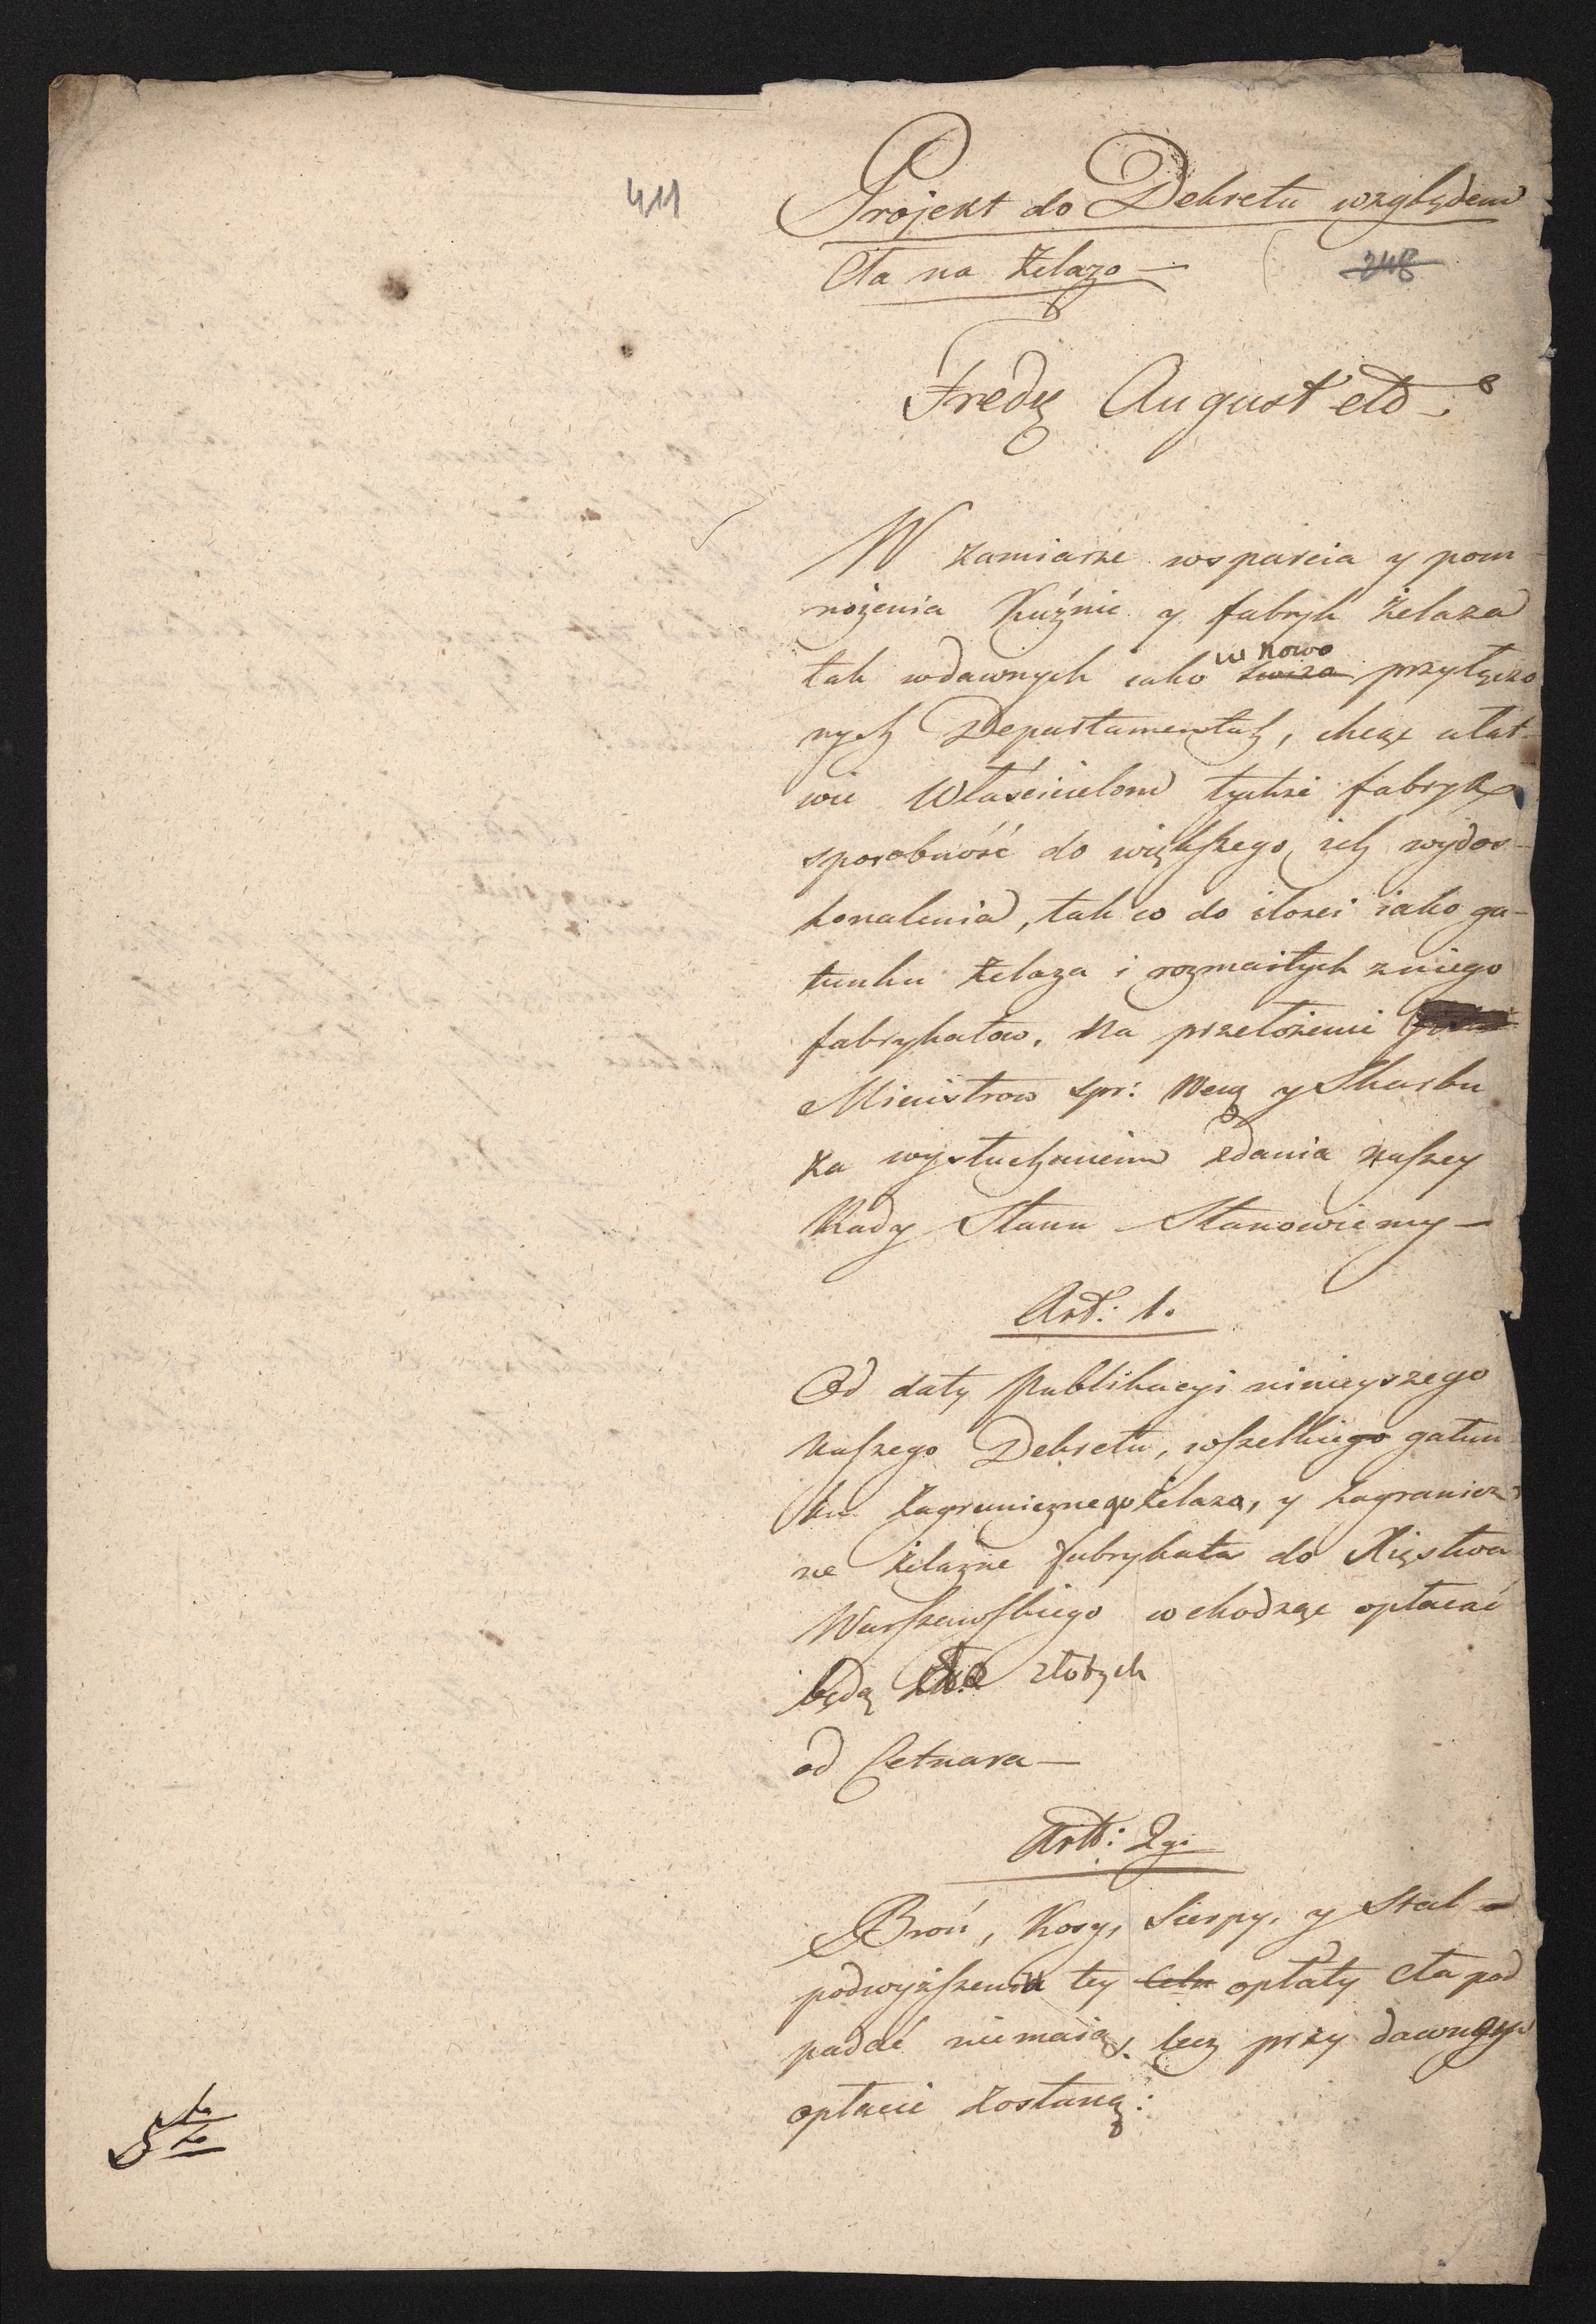 411
Projekt do Dekretu względem
Cła na Żelazo —
248
Fredr August etc
W zamiarze wsparcia y pom-
nożenia Kuźnic y fabryk żelaza
tak wdawnych iako w nowo przyłączo
nych Departamentach, chcąc ułat-
wić Właścicielom tychże fabryk
sposobność do większego ich wydos-
konalenia, tak co do ilości iako ga-
tunku żelaza i rozmaitych zniego
fabrykatow, na przełożenie
Ministrow spr: Wew y Skarbu
za wysłuchaniem zdania naszey
Rady Stanu Stanowiemy —
Art: 1.
Od daty Publikacyi ninieyszego
naszego Dekretu, wszelkiego gatun
ku zagranicznego żelaza, y zagranicz
ne żelazne fabrykata do Xięstwa
Warszawskiego wchodząc opłacać
będą złotych
od Cetnara —
Art: 2gi
Broń, Kosy, Sierpy, y Stal —
podwyższeniu tey opłaty Cła pod
padać niemaią, lecz przy dawney
opłacie zostaną: